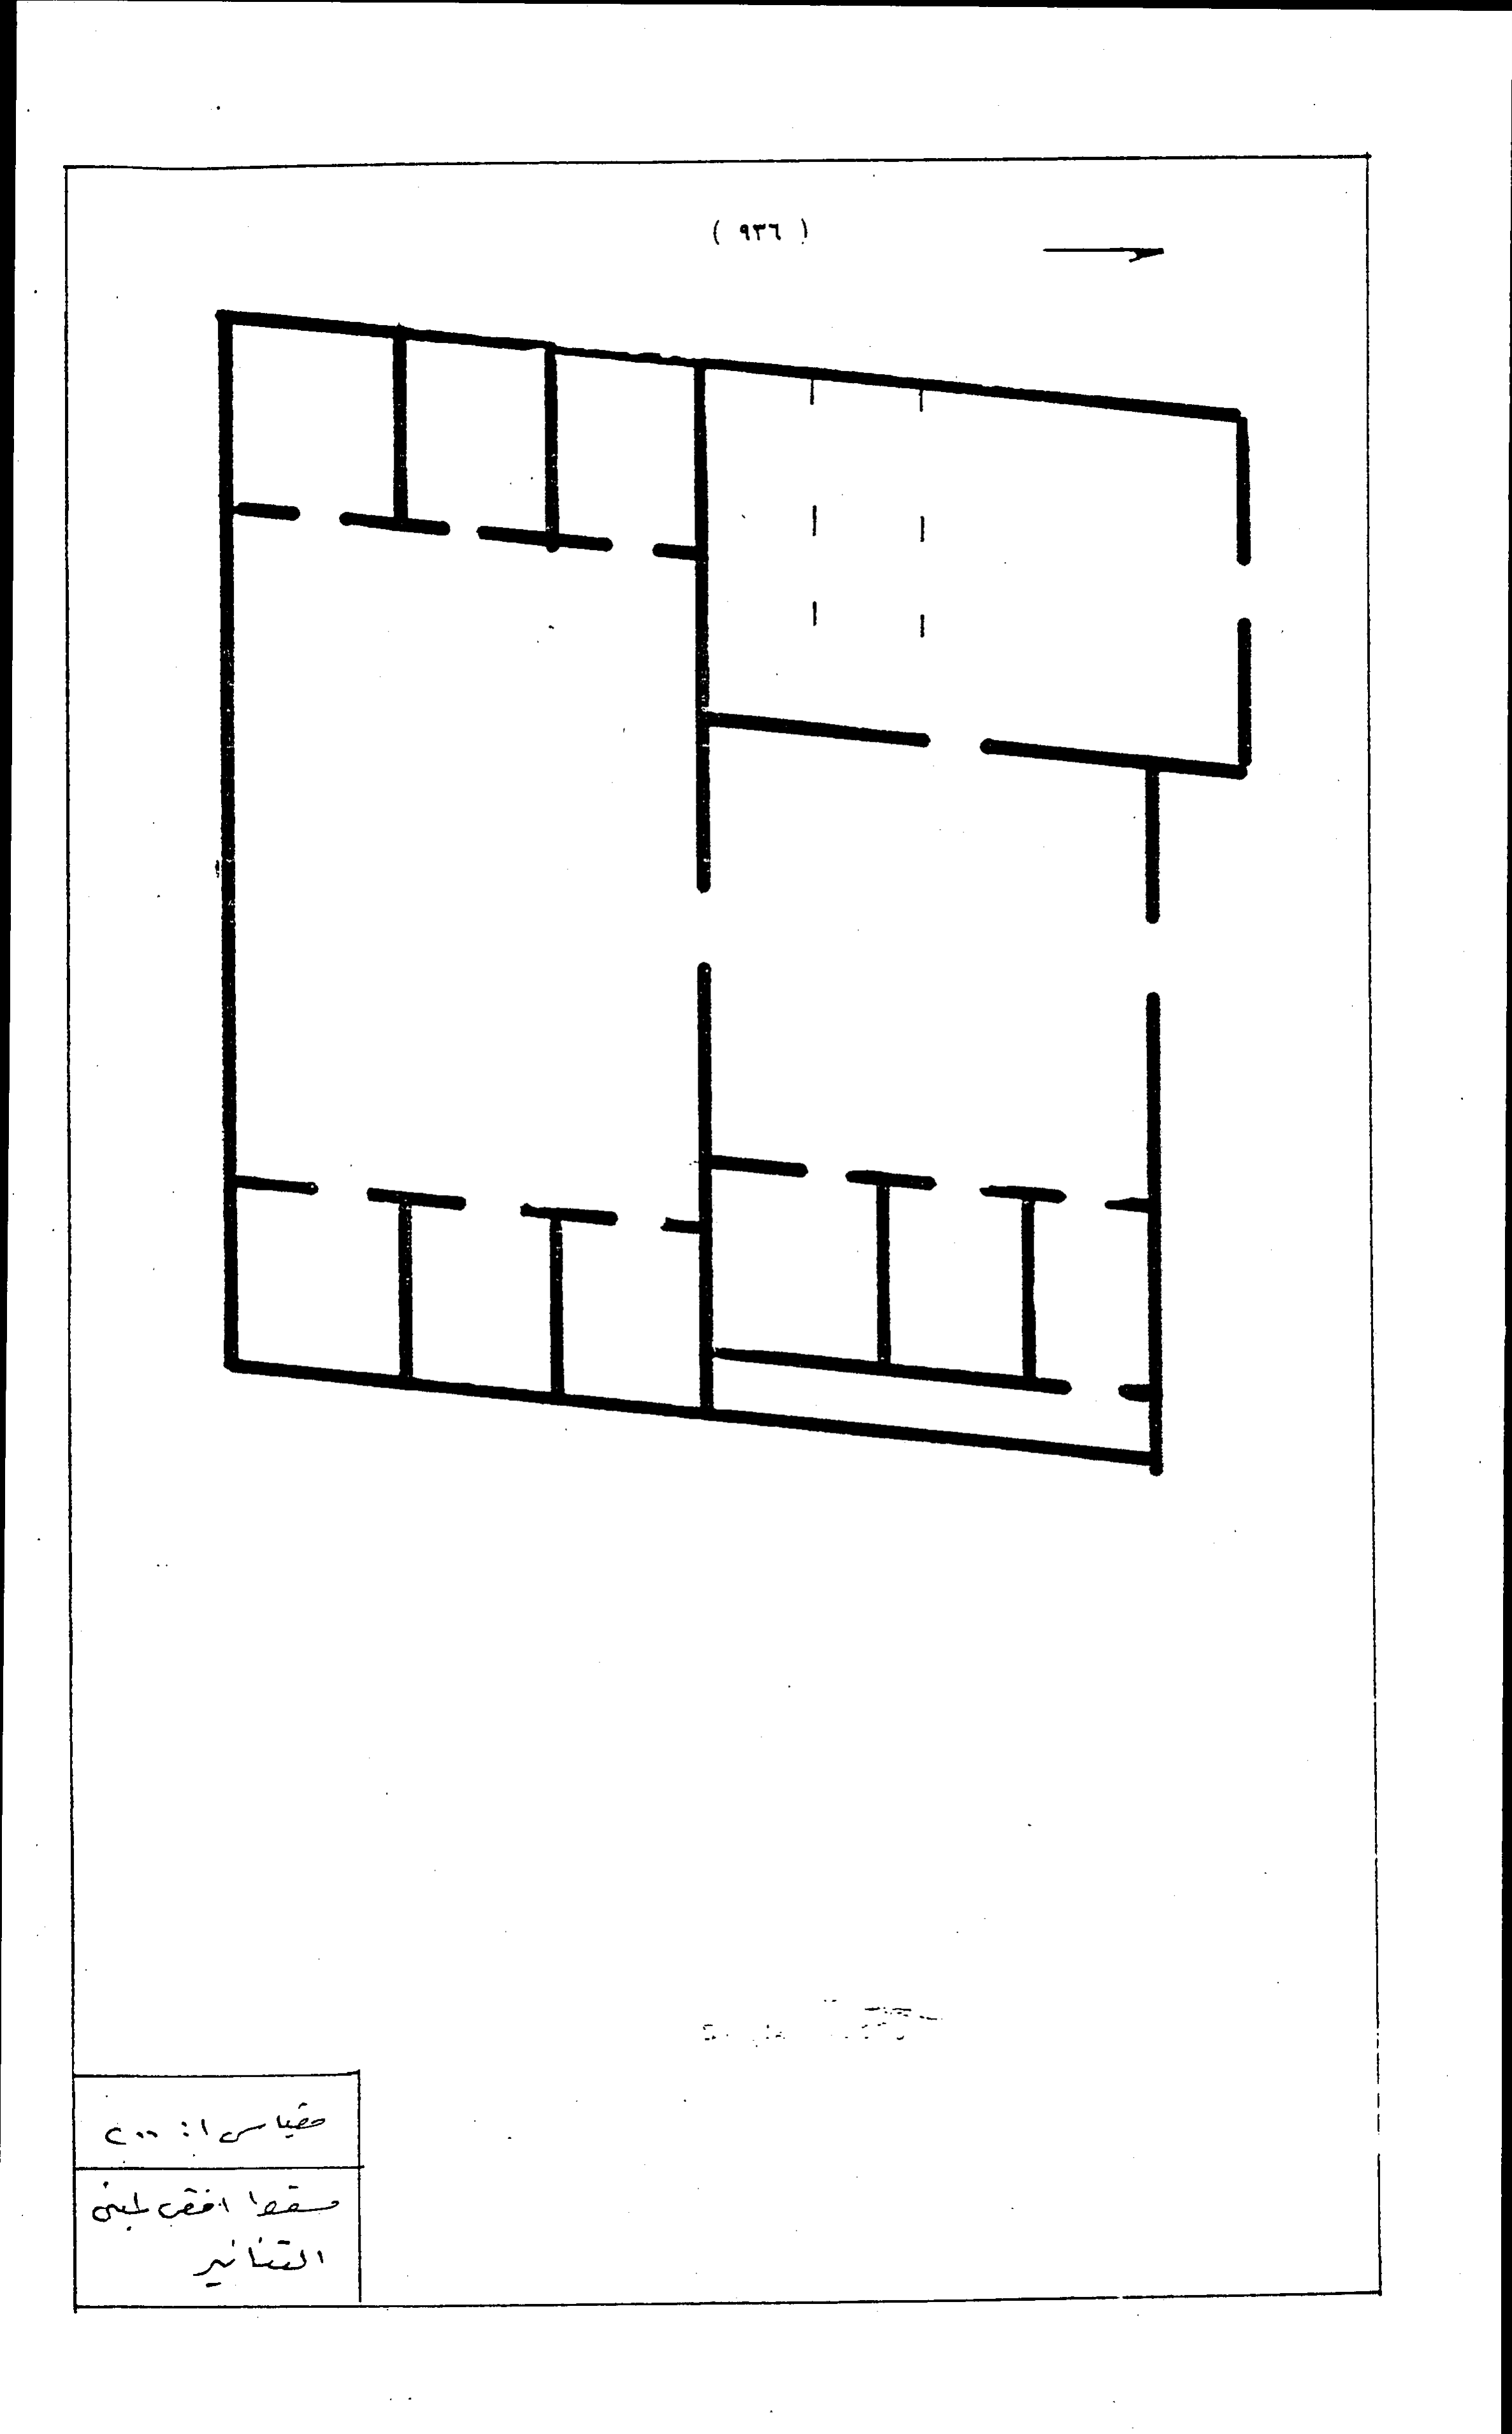 ( ٩٣٦ )
مقياس ١ : ٢٠٠
مسقط افقى لمبنى
التنانير